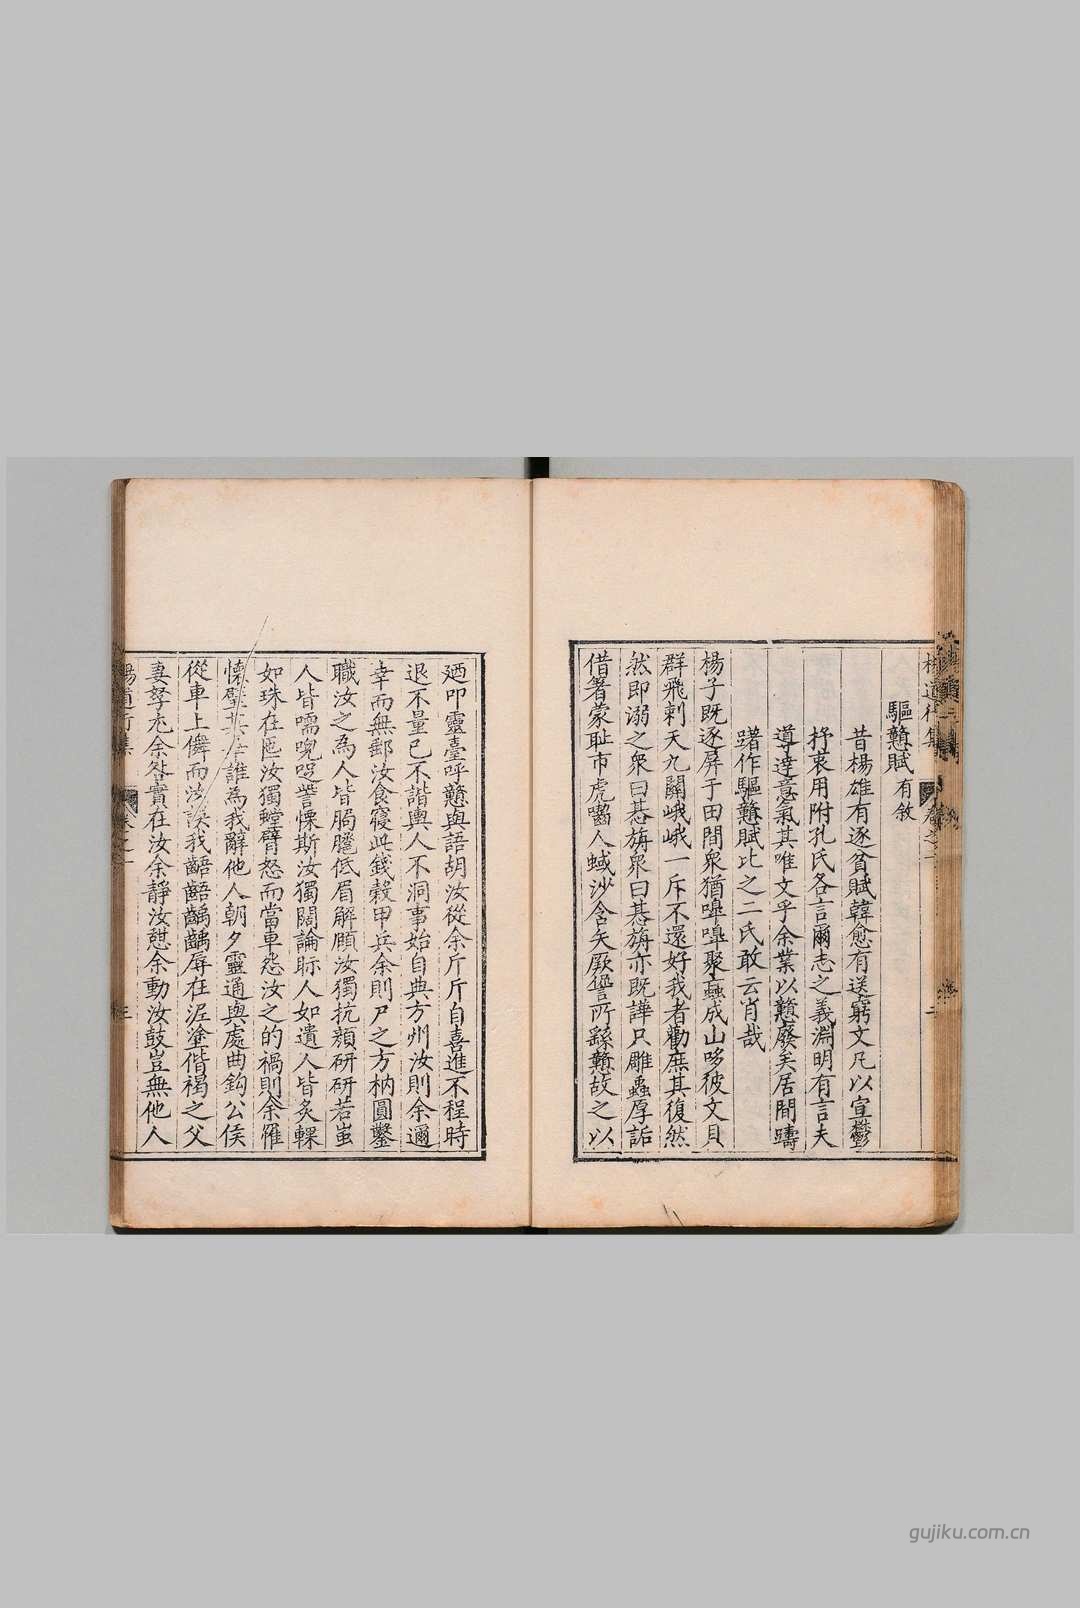 驅戇賦有敘
昔楊雄有逐貧賦韓愈有送窮文凡以宣鬱
抒衷用附孔氏各言爾志之義淵明有言夫
導達意氣其唯文乎余業以戇廢矣居閒躊
躇作驅戇賦比之二氏敢云肖哉
楊子既逐屏于田間衆猶嘷嘷聚蟁成山哆彼文貝
群飛刺天九關峨峨一斥不還好我者勸庶其復然
然即溺之衆曰惎旃衆曰惎旃亦既譁只雕蟲厚詬
借箸蒙耻市虎嚙人蜮沙含矢厥譽所繇戇故之以
廼叩靈臺呼戇與語胡汝從余斤斤自喜進不程時
退不量已不諧輿人不洞事始自典方州汝則余邇
幸而無郵汝食寢此錢穀甲兵余則尸之方枘圓鑿
職汝之為人皆腡膯低眉解頤汝獨抗顔硏硏若蚩
人皆嚅唲咫訾慄斯汝獨闊論眎人如遺人皆炙輠
如珠在匜汝獨螳臂怒而當車怨汝之的禍則余罹
懷璧其辠誰為我辭他人朝夕靈通與處曲鈎公侯
從車上僲而汝誤我齬齬齲齲辱在泥塗偕褐之父
妻孥尤余咎實在汝余靜汝憇余動汝鼓豈無他人
楊道行集 卷之一 三
gujiku.com.cn